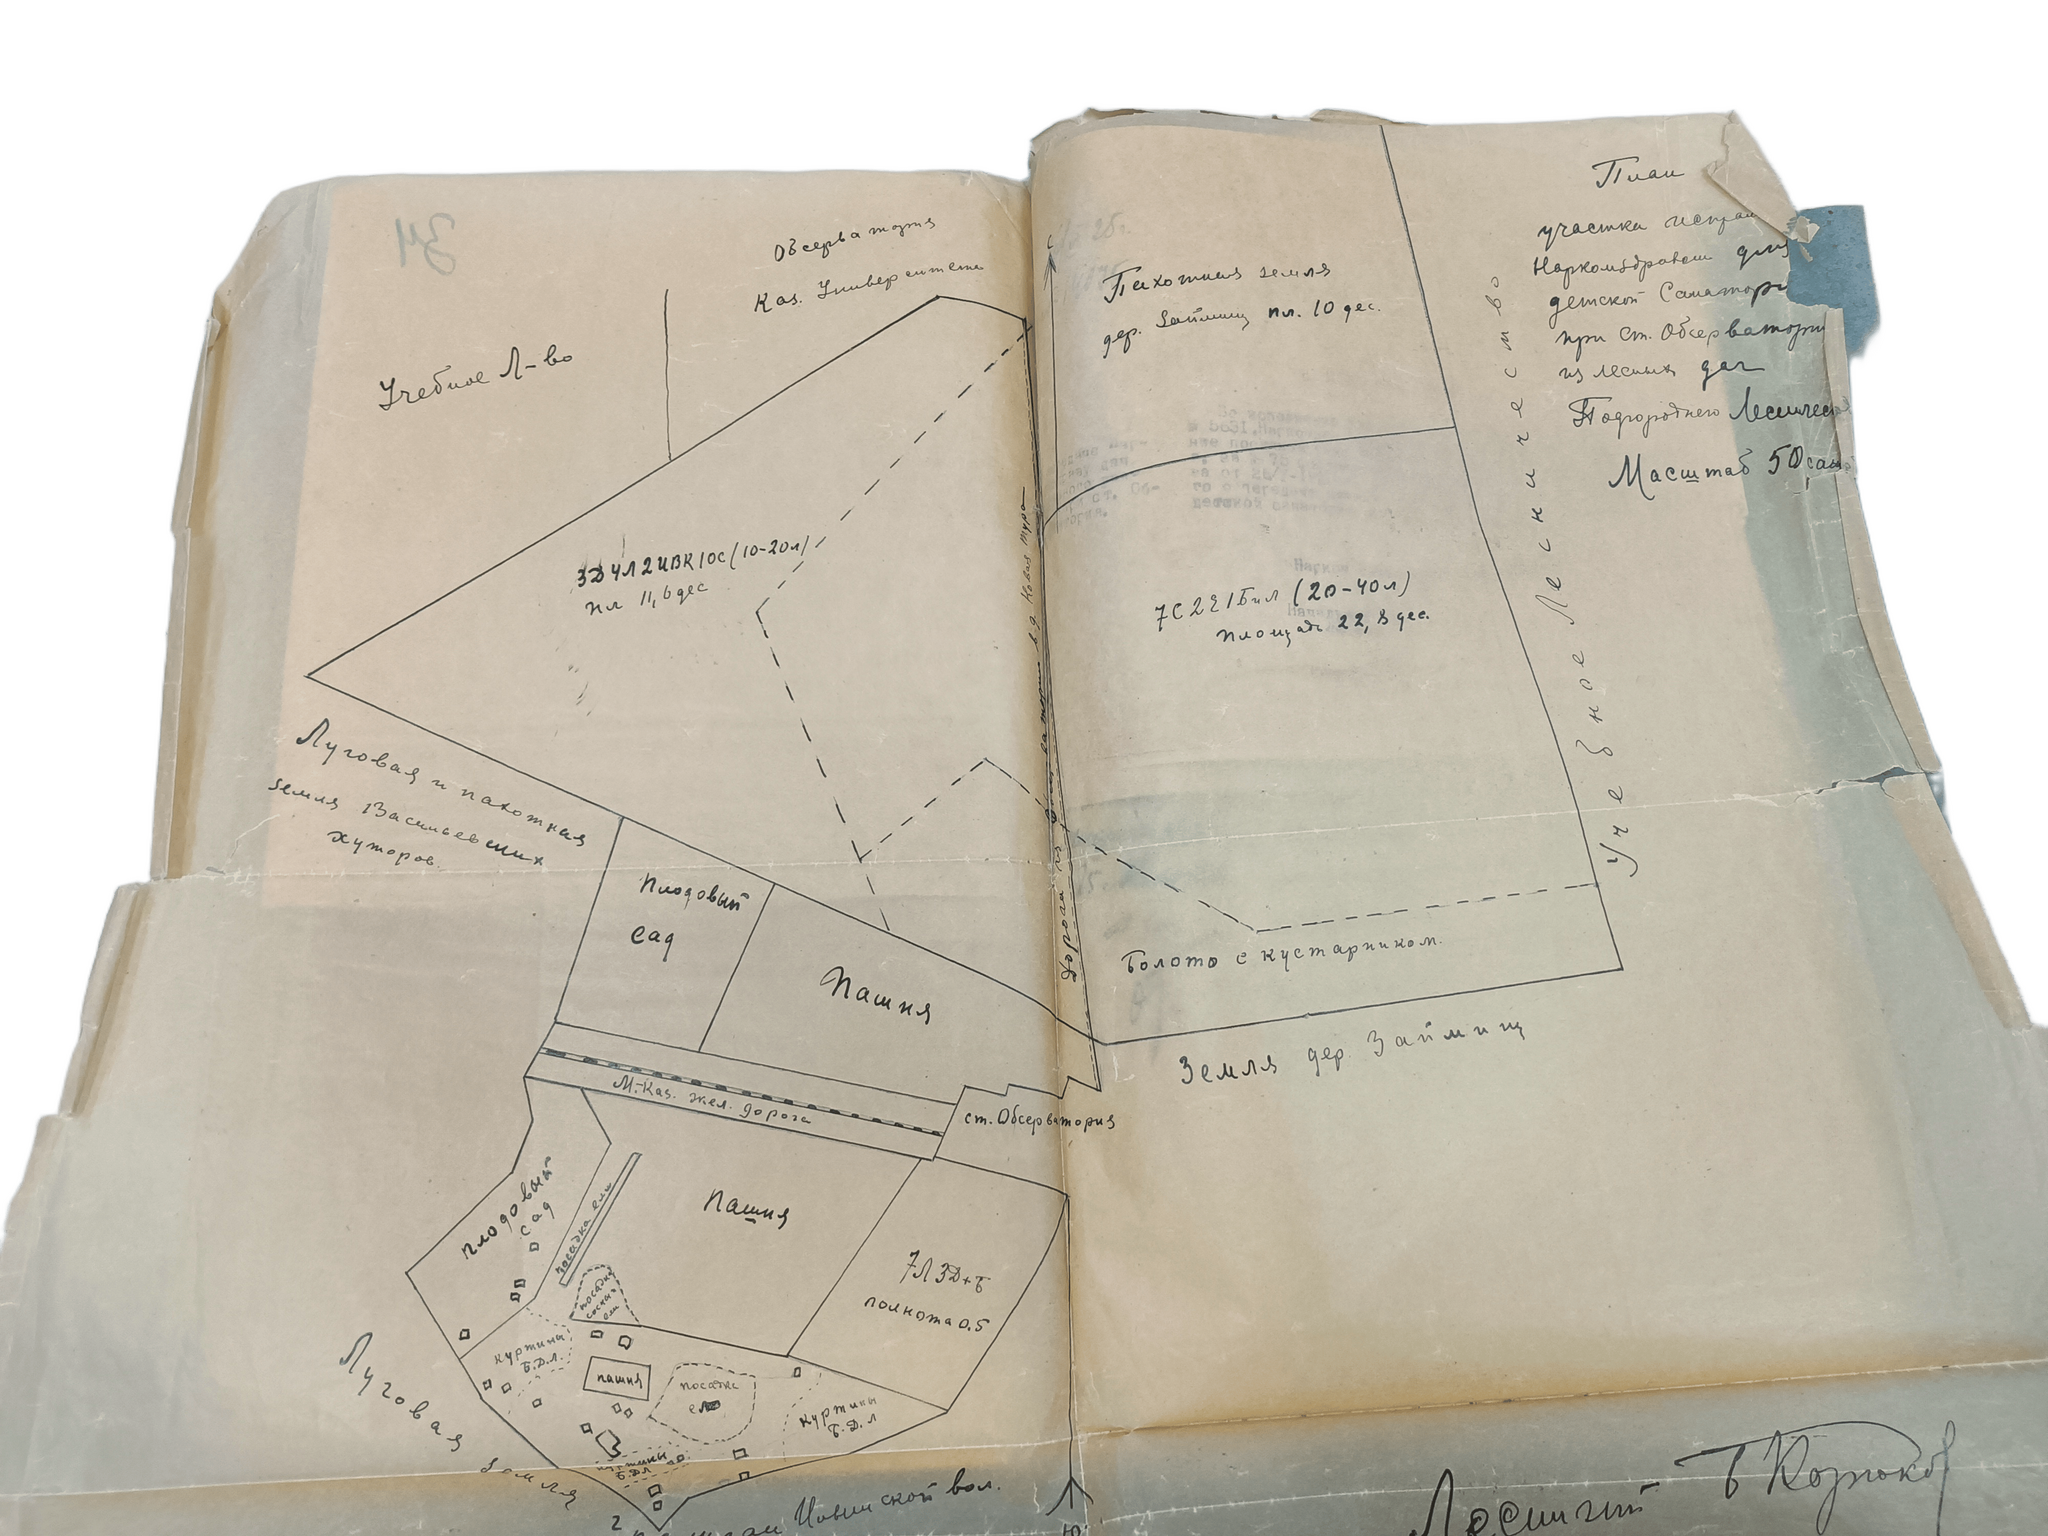 План
участка испра
Наркомздравом для
детской Санатори
при ст. Обсерватории
из лесных дач
Подгороднего Лесничес
Масштаб 50 саж
34
Обсерватория
Каз. Университета
Учебное Л-во
Пахотная земля
дер. Займищ пл. 10 дес.
Учебное Лесничество
3Д4Л2ИВК1ОС (10-20л)
пл 11,6 дес
7С2Е1Бил (20-40л)
площадь 22,8 дес.
Дорога из в д. Новая тура
Луговая и пахотная
земля Васильевских
хуторов.
Плодовый
сад
Пашня
Болото с кустарником.
Земля дер. Займищ
М.-Каз. жел. дорога
ст. Обсерватория
плодовый
сад
посадка ели
Пашня
посадка
сосны
ели
7Л3Д+Б
полнота 0.5
куртины
Б.Д.Л.
пашня
посадка
куртины
Б.Д.Л
куртины
Б.Д.Л
Луговая земля
Новинской вол.
Ю
Лесничий